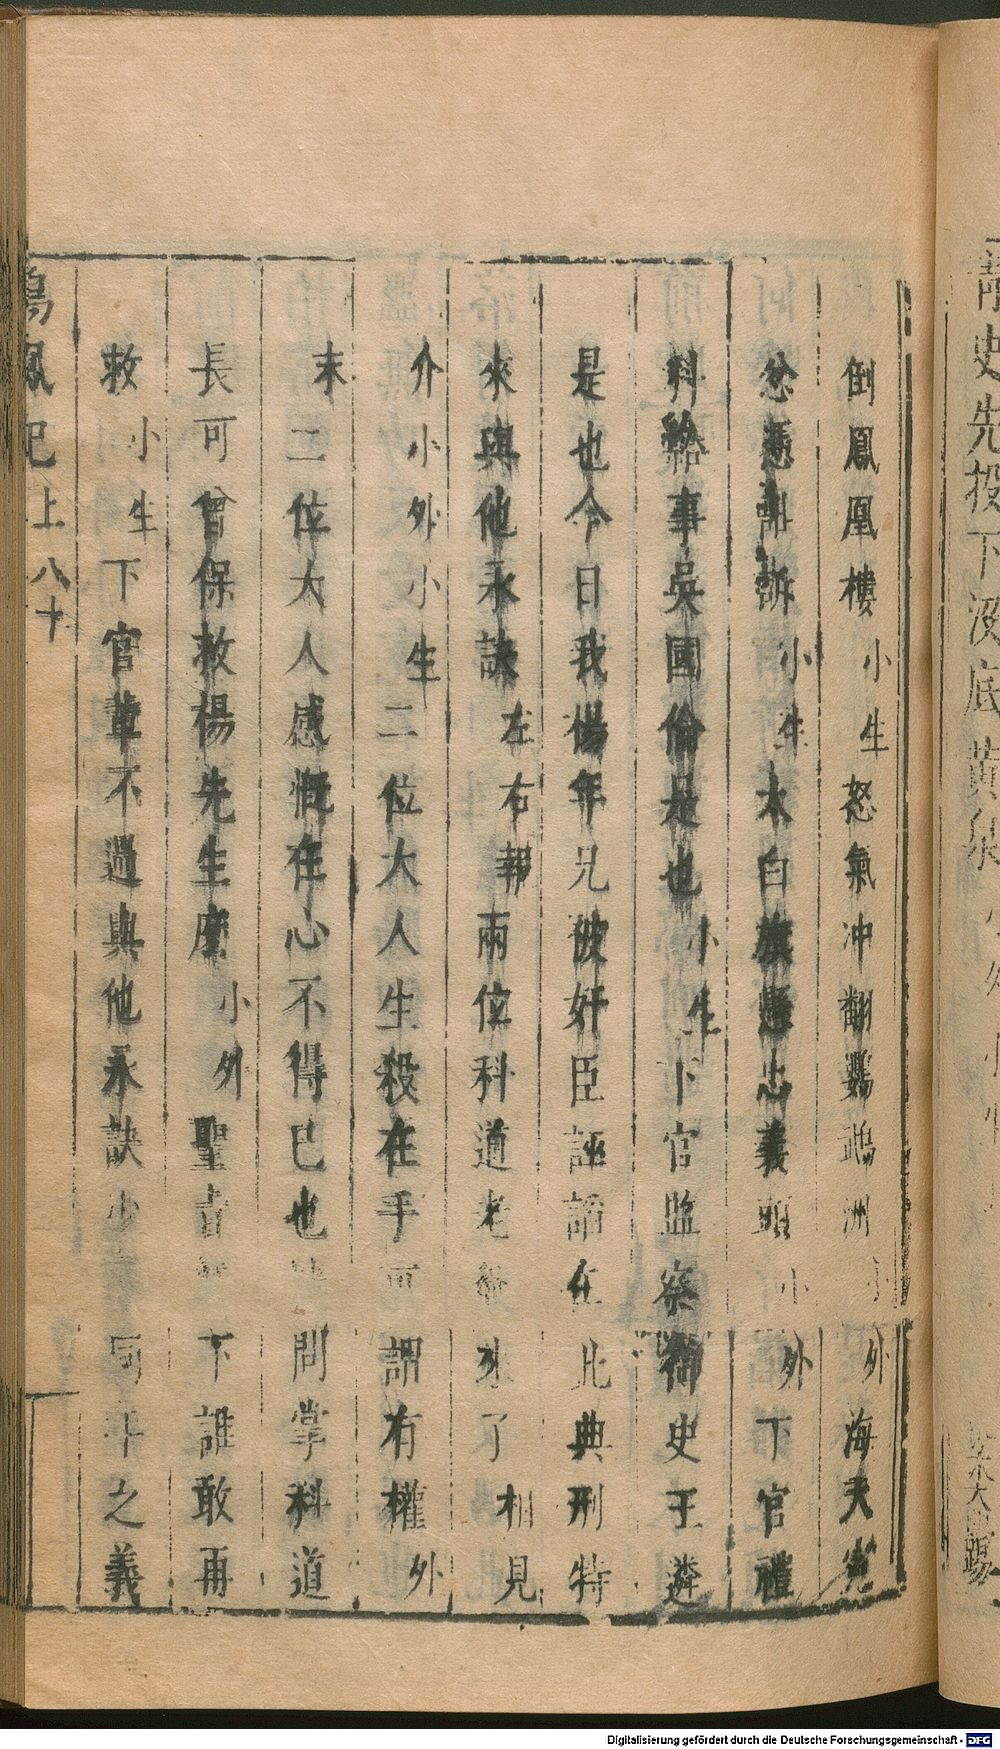 倒鳳凰樓小生怒氣冲翻鸚鵡洲小外海天寃
忿憑誰訴小生太白旗懸忠義頭小外下官禮
科給事吳國倫是也小生下官監察御史王遴
是也今日我楊年兄被奸臣誣謟在此典刑特
來與他永訣左右報兩位科道老爺來了相見
介小外小生二位大人生殺在手可謂有權外
末二位大人感慨在心不得已也 問掌科道
長可曾保救楊先生麽小外聖旨 下誰敢再
救小生下官輩不過與他永訣少 同年之義
鳴鳳記 上 八十
青史先投下渡底黃泉
Digitalisierung gefördert durch die Deutsche Forschungsgemeinschaft - DFG